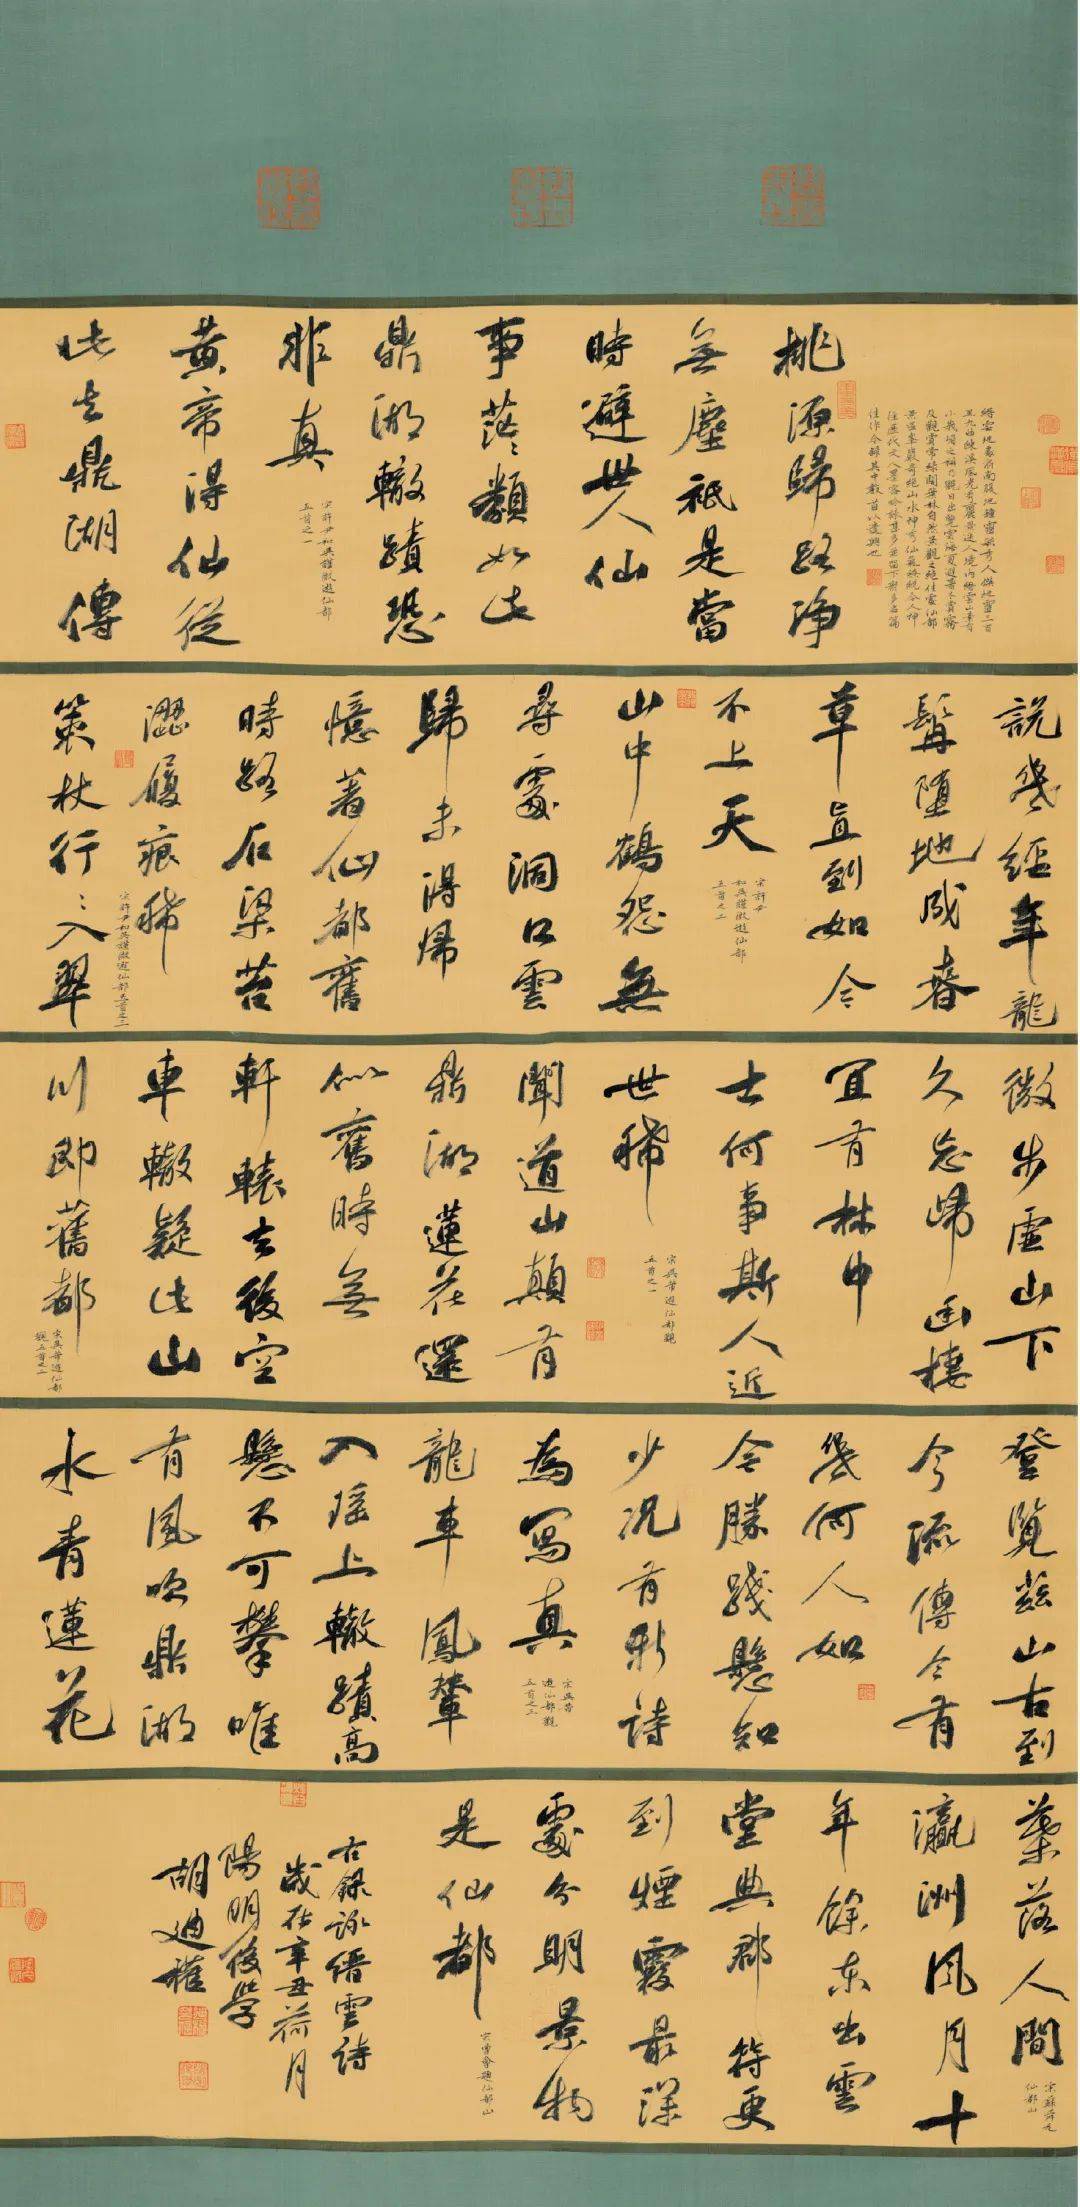 桃源歸路净
無塵祇是當
時避世人仙
事茫茫類如此
鼎湖轍蹟恐
非真
宋許尹和吳謹微遊仙都
五首之一
黄帝得仙從
此去鼎湖傳
說幾經年龍
髯墮地成春
草直到如今
不上天
宋許尹
和吳謹微遊仙都
五首之二
山中鶴怨無
尋處洞口雲
歸未得歸
憶著仙都舊
時路石梁苔
澀屐痕稀
宋許尹和吳謹微遊仙都五首之三
策杖行行入翠
微步虛山下
久忘歸幽棲
宜有林中
士何事斯人近
世稀
宋吳芾遊仙都觀
五首之一
聞道山顛有
鼎湖蓮花還
似舊時無
軒轅去後空
車轍疑此山
川即舊都
宋吳芾遊仙都
觀五首之二
登覽茲山古到
今流傳今有
幾何人如
今勝踐懸知
少況有新詩
為寫真
宋吳芾
遊仙都觀
五首之三
龍車鳳輦
入瑶上轍蹟高
懸不可攀唯
有風吹鼎湖
水青蓮花
葉落人間
仙都山
瀛洲風月十
年餘東出雲
堂典郡符更
到煙霞最深
處分明景物
是仙都
宋曹會題仙都山
右錄詠縉雲詩
歲在辛丑荷月
陽明後學
胡迪權